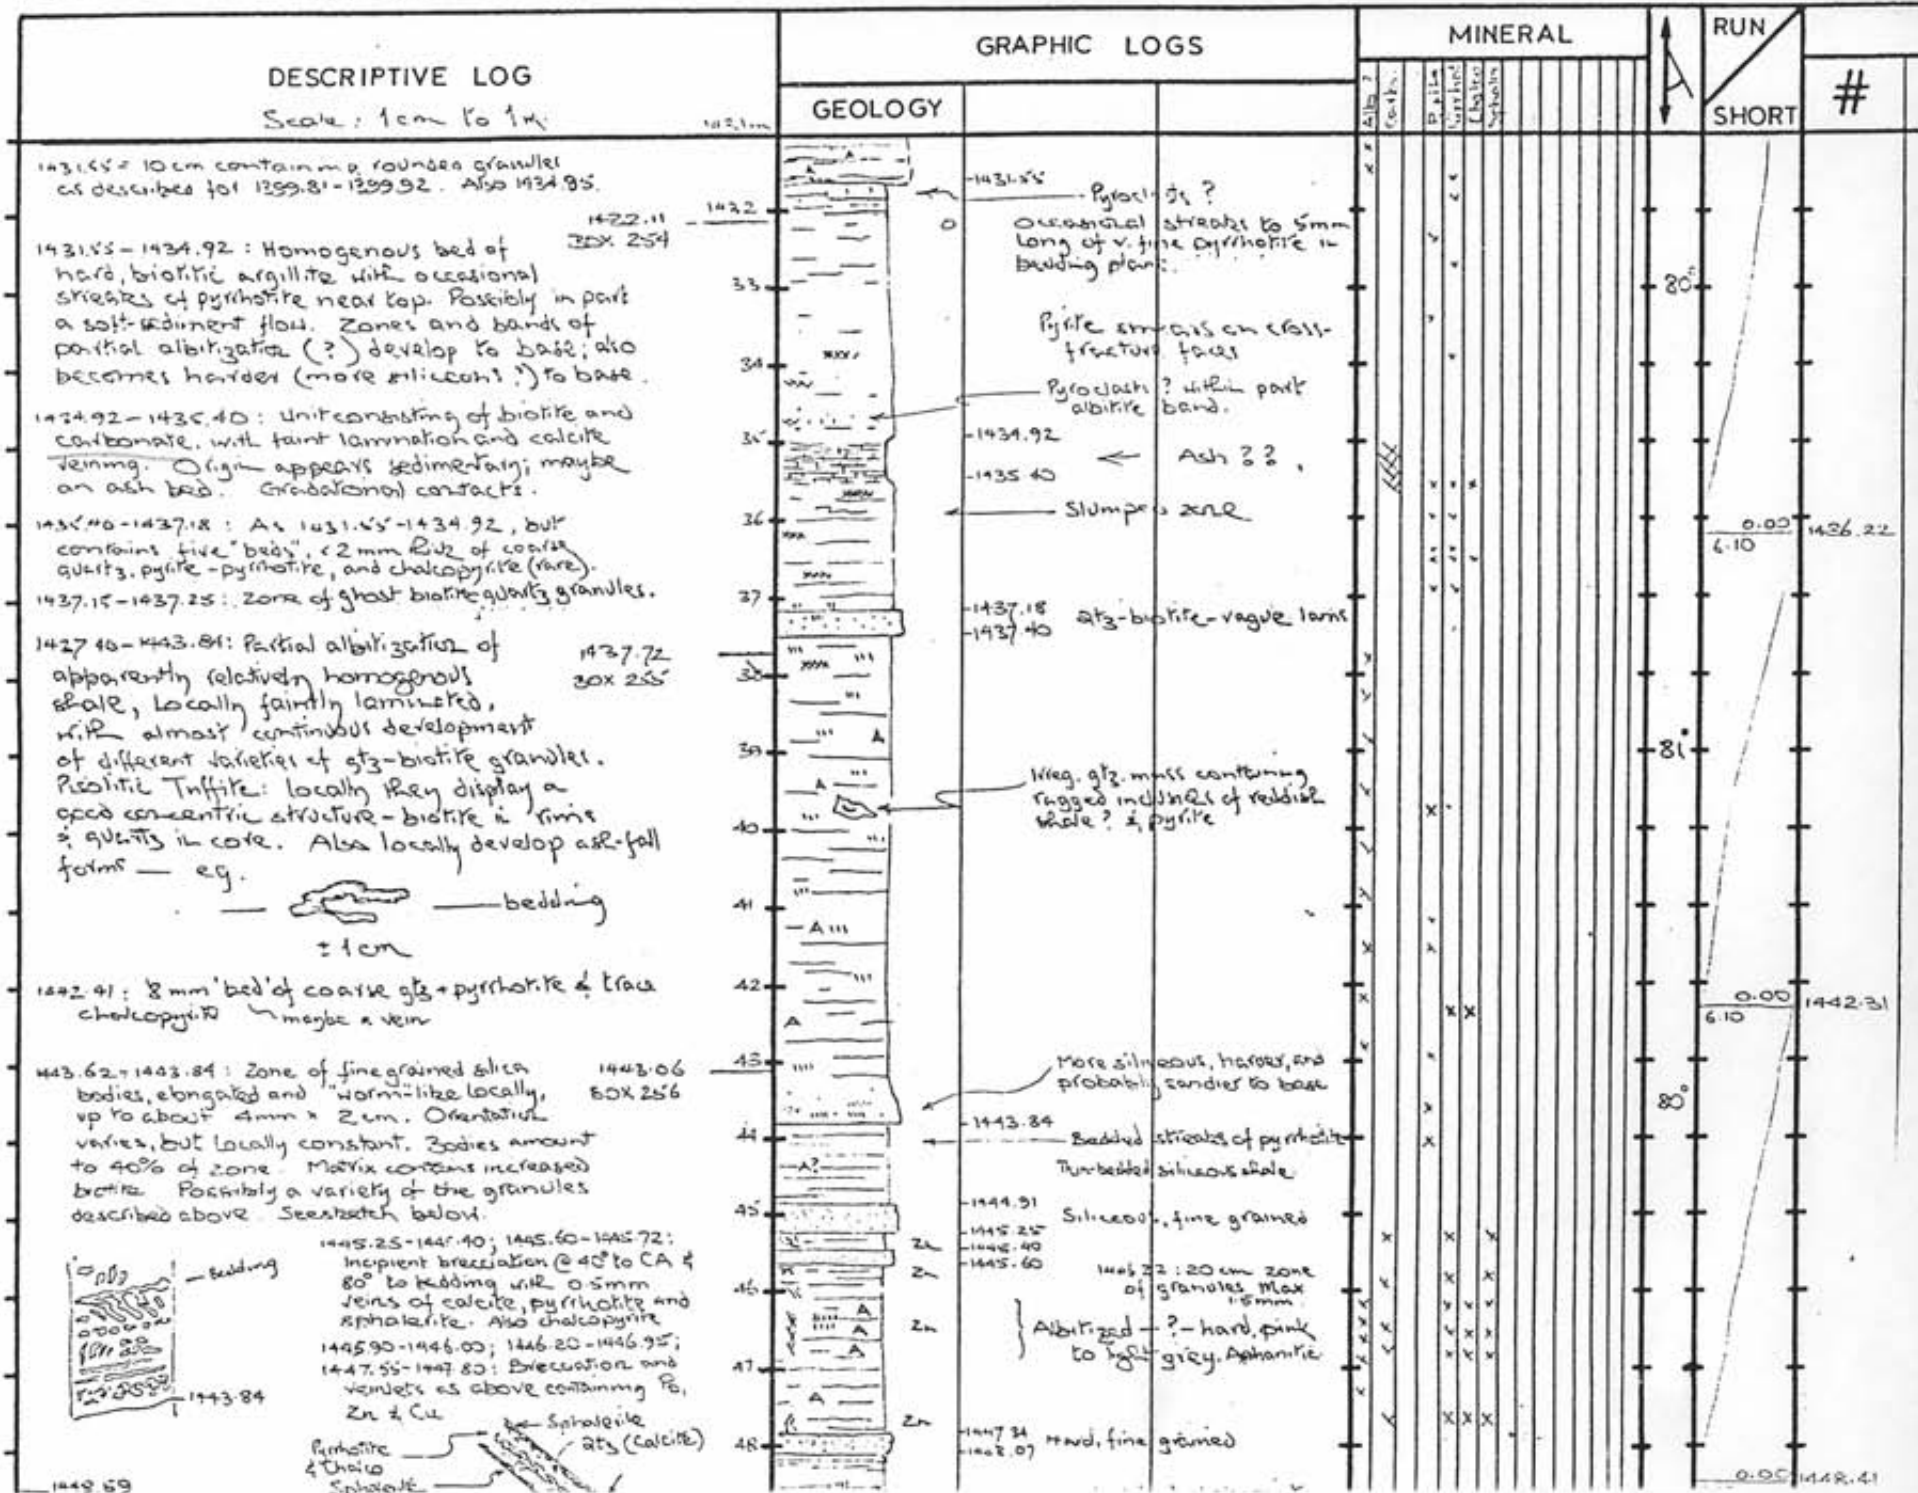 DESCRIPTIVE LOG
Scale: 1cm to 1m
GRAPHIC LOGS
GEOLOGY
MINERAL
RUN
SHORT
#
1431.55 = 10 cm containing rounded granules
as described for 1399.81-1399.92. Also 1434.95.
30X 254
1431.55 - 1434.92 : Homogenous bed of
hard, biotitic argillite with occasional
streaks of pyrrhotite near top. Possibly in part
a soft-sediment flow. Zones and bands of
partial albitization (?) develop to base; also
becomes harder (more siliceous?) to base.
1434.92 - 1435.40 : Unit consisting of biotite and
carbonate, with faint lamination and calcite
veining. Origin appears sedimentary; maybe
an ash bed. Gradational contacts.
1435.40-1437.18 : As 1431.55-1434.92, but
contains five "beds", <2mm thick of coarse
quartz, pyrite-pyrrhotite, and chalcopyrite (rare).
1437.15-1437.25: Zone of ghost biotite quartz granules.
1437.72
30X 255
1437.40-1443.84: Partial albitization of
apparently relatively homogenous
shale, locally faintly laminated,
with almost continuous development
of different varieties of qtz-biotite granules.
Pisolitic Tuffite: locally they display a
good concentric structure - biotite in rims
& quartz in core. Also locally develop ash-fall
forms — eg.
bedding
± 1cm
1442.41: 8mm 'bed' of coarse qtz + pyrrhotite & trace
chalcopyrite maybe a vein
1443.06
BOX 256
1443.62-1443.84: Zone of fine grained silica
bodies, elongated and "worm"-like locally,
up to about 4mm x 2cm. Orientation
varies, but locally constant. Bodies amount
to 40% of zone. Matrix contains increased
biotite. Possibly a variety of the granules
described above. See sketch below.
Bedding
1443.84
1445.25-1445.40; 1445.60-1445.72:
Incipient brecciation @ 40° to CA &
80° to bedding with 0.5mm
veins of calcite, pyrrhotite and
sphalerite. Also chalcopyrite
1445.90-1446.00; 1446.20-1446.95;
1447.55-1447.80: Brecciation and
veinlets as above containing Po,
Zn & Cu
Sphalerite
Qtz (Calcite)
Pyrrhotite
& Chalco
Sphalerite
1432
33
34
35
36
37
38
39
40
41
42
43
44
45
46
47
48
A
A
A
A
A
A
A?
A
A
A
A
Zn
Zn
Zn
Zn
1431.55
Occasional streaks to 5mm
long of v. fine pyrrhotite in
bedding plane.
Pyrite smears on cross-
fracture faces
Pyroclasts? within part
albitite band.
1434.92
Ash ??
1435.40
Slumped zone
1437.18
1437.40
Qtz-biotite-vague lams
Irreg. qtz. mass containing
ragged inclusions of reddish
shale? & pyrite
More siliceous, harder, and
probably sandier to base
1443.84
Bedded streaks of pyrrhotite
Thin bedded siliceous shale
1444.91
Siliceous, fine grained
1445.25
1445.40
1445.60
20 cm zone
of granules max
1.5mm
Albitized - ? - hard, pink
to light grey. Aphanitic
1448.07
Hard, fine grained
80°
81°
8°
0.00
6.10
1436.22
0.00
6.10
1442.31
0.00
1448.41